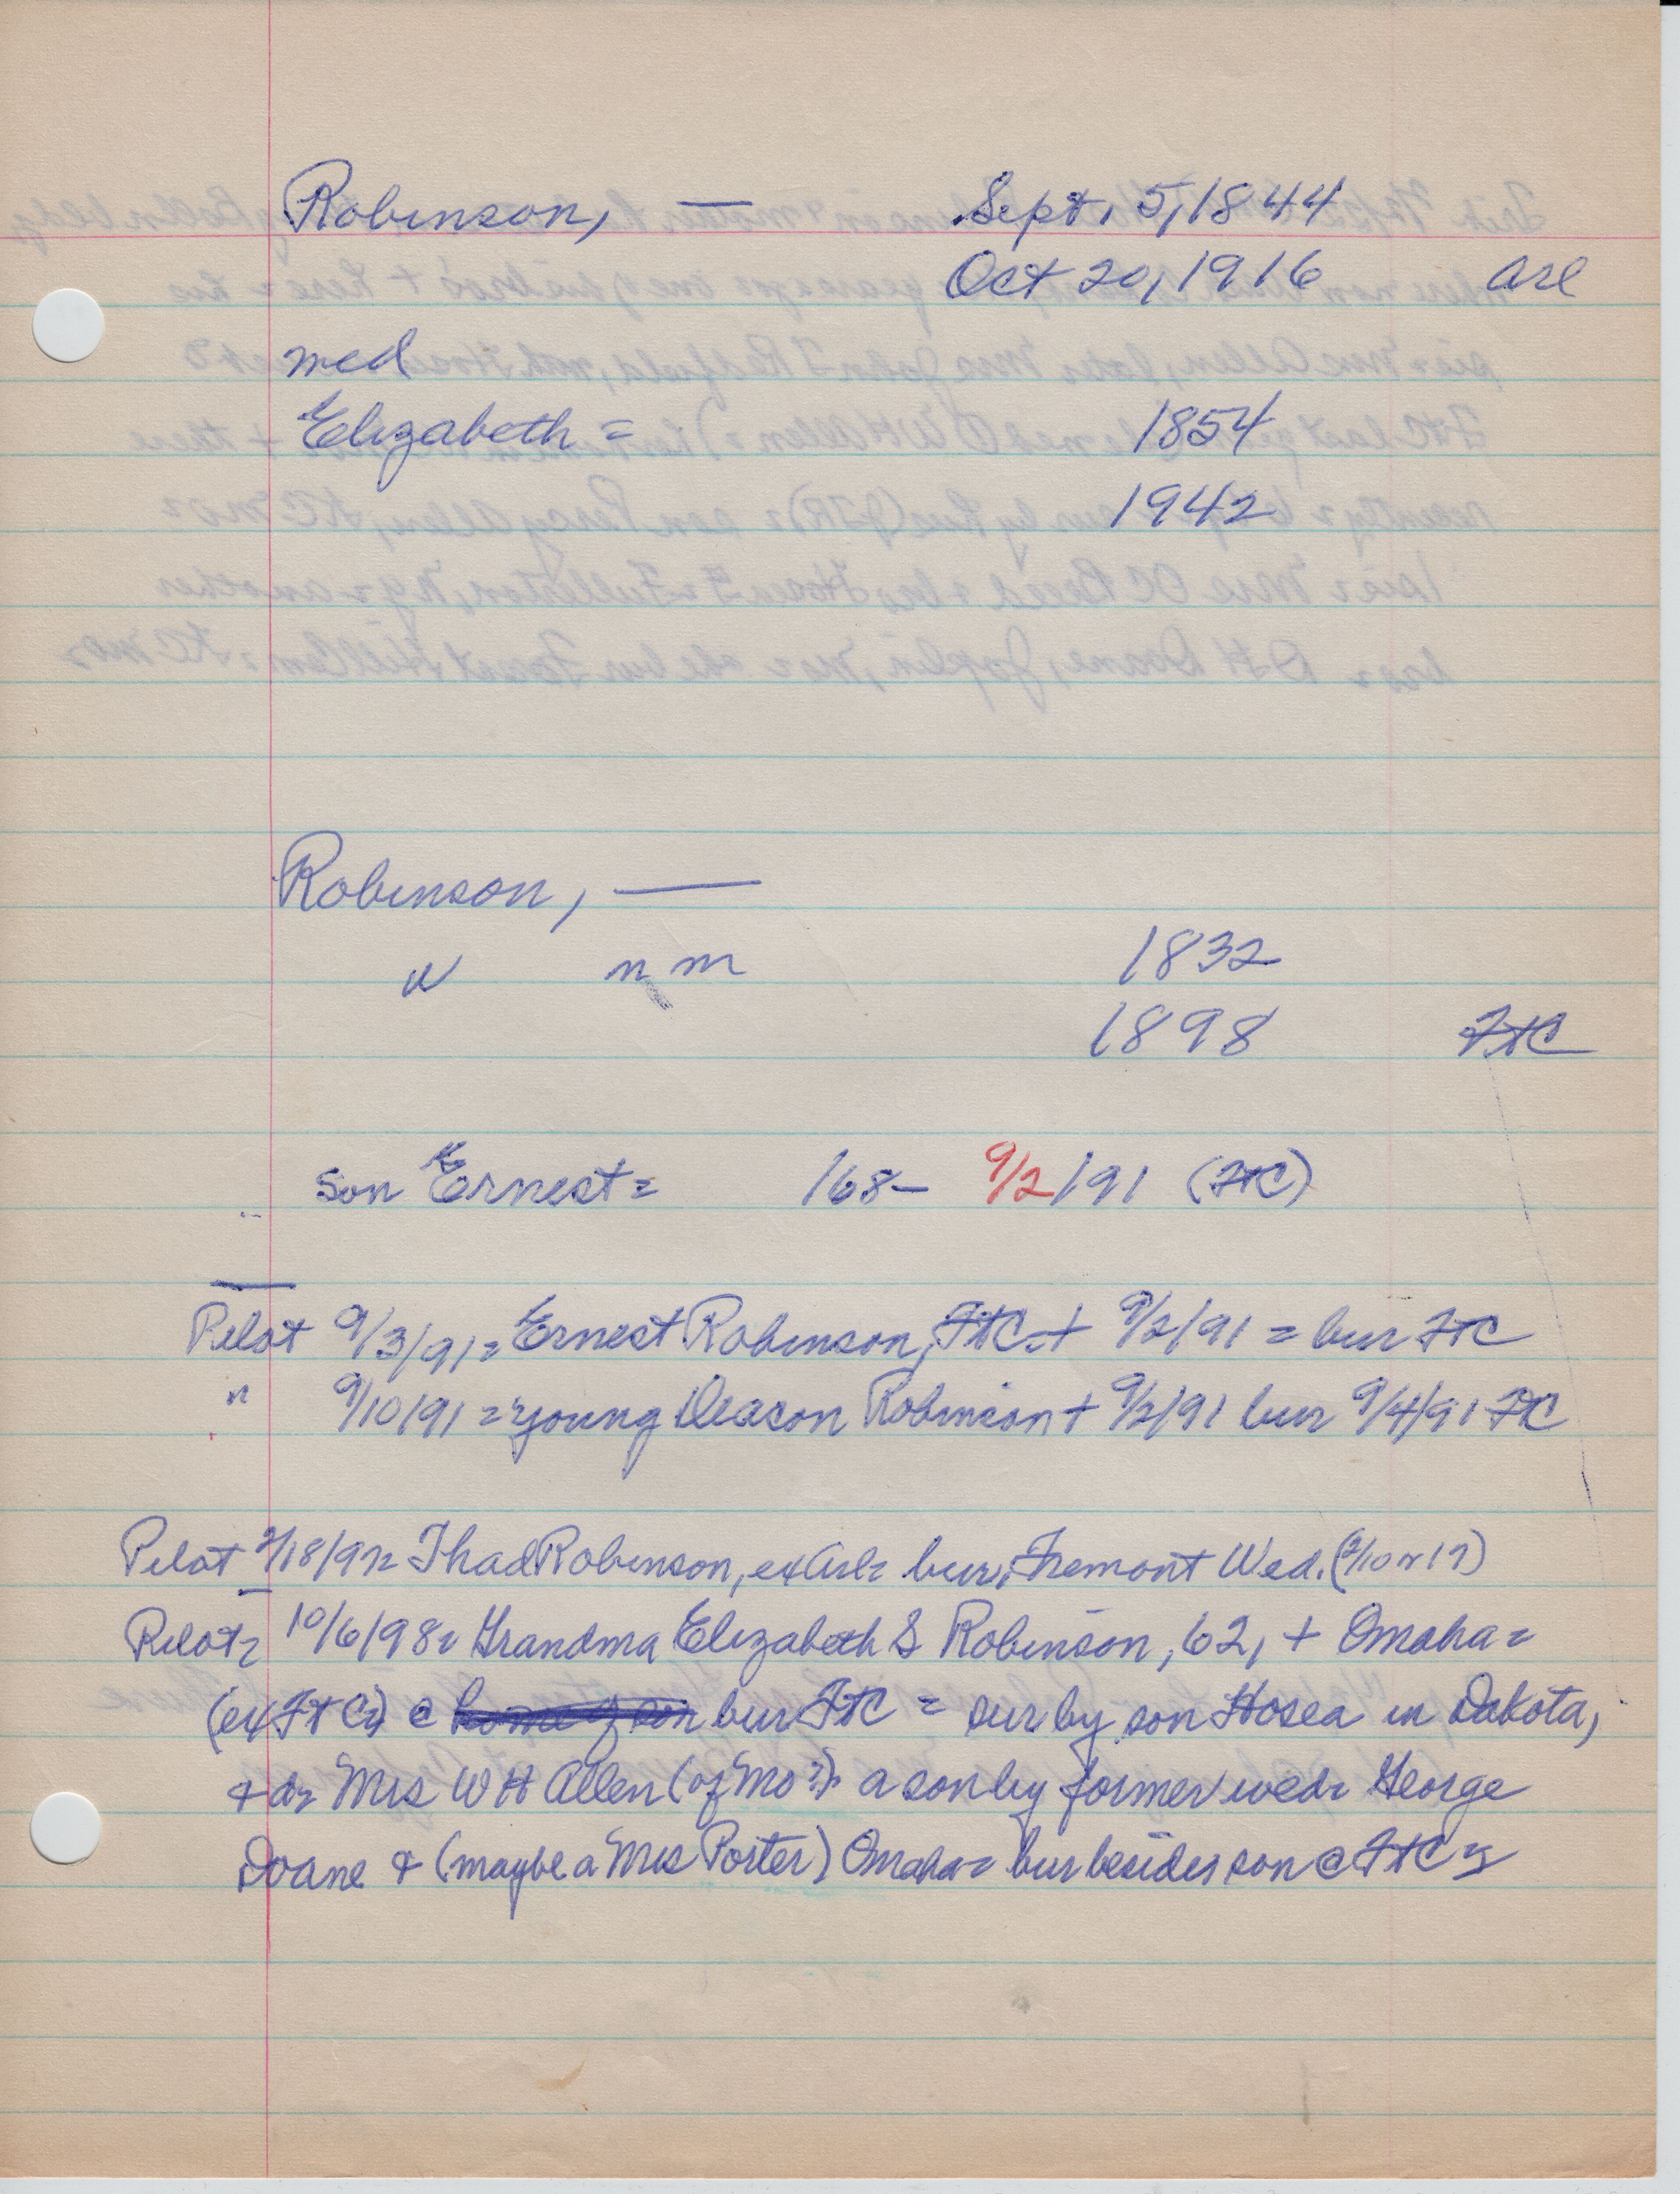 Robinson, — Sept. 5, 1844
Oct 20, 1916 Arl
med
Elizabeth = 1854
1942
Robinson, —
w n m 1832
1898 FtC
Son Ernest = 168– 9/2/91 (FtC)
Pilot 9/3/91 = Ernest Robinson, FtC = + 9/2/91 = bur FtC
" 9/10/91 = young Deacon Robinson + 9/2/91 bur 9/4/91 FtC
Pilot 2/18/92 = Thad Robinson, ex Arl = bur, Fremont Wed. (2/10 or 17)
Pilot = 10/6/98 = Grandma Elizabeth S Robinson, 62, + Omaha =
(ex Ft C =) @ home of son bur FtC = sur by son Hosea in Dakota,
+ d = Mrs W H Allen (of Mo?) = a son by former wed = George
Doane & (maybe a Mrs Porter) Omaha = bur besides son @ FtC =